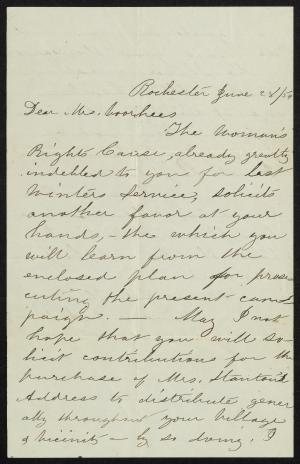 Rochester June 28/54
Dear Mrs. Voorhees
The Woman's
Rights Cause, already greatly
indebted to you for last
Winters service, solicits
another favor at your
hands, - the which you
will learn from the
enclosed plan for prose-
cuting the present cam-
paign. — May I not
hope that you will so-
licit contributions for the
purchase of Mrs. Stanton's
Address to distribute gener
ally throughout your Village
& vicinity - by so doing, I